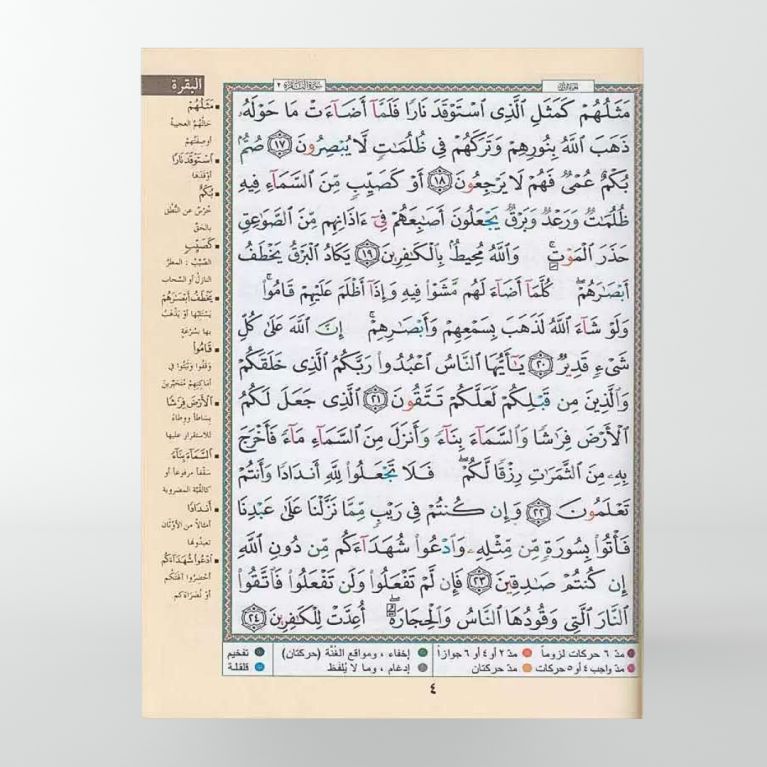 البقرة
سورة البقرة ٢
مَثَلُهُمْ كَمَثَلِ ٱلَّذِى ٱسْتَوْقَدَ نَارًا فَلَمَّآ أَضَآءَتْ مَا حَوْلَهُۥ
ذَهَبَ ٱللَّهُ بِنُورِهِمْ وَتَرَكَهُمْ فِى ظُلُمَٰتٍ لَّا يُبْصِرُونَ ١٧ صُمٌّۢ
بُكْمٌ عُمْىٌ فَهُمْ لَا يَرْجِعُونَ ١٨ أَوْ كَصَيِّبٍ مِّنَ ٱلسَّمَآءِ فِيهِ
ظُلُمَٰتٌ وَرَعْدٌ وَبَرْقٌ يَجْعَلُونَ أَصَٰبِعَهُمْ فِىٓ ءَاذَانِهِم مِّنَ ٱلصَّوَٰعِقِ
حَذَرَ ٱلْمَوْتِ ۚ وَٱللَّهُ مُحِيطٌۢ بِٱلْكَٰفِرِينَ ١٩ يَكَادُ ٱلْبَرْقُ يَخْطَفُ
أَبْصَٰرَهُمْ ۖ كُلَّمَآ أَضَآءَ لَهُم مَّشَوْا۟ فِيهِ وَإِذَآ أَظْلَمَ عَلَيْهِمْ قَامُوا۟ ۚ
وَلَوْ شَآءَ ٱللَّهُ لَذَهَبَ بِسَمْعِهِمْ وَأَبْصَٰرِهِمْ ۚ إِنَّ ٱللَّهَ عَلَىٰ كُلِّ
شَىْءٍ قَدِيرٌ ٢٠ يَٰٓأَيُّهَا ٱلنَّاسُ ٱعْبُدُوا۟ رَبَّكُمُ ٱلَّذِى خَلَقَكُمْ
وَٱلَّذِينَ مِن قَبْلِكُمْ لَعَلَّكُمْ تَتَّقُونَ ٢١ ٱلَّذِى جَعَلَ لَكُمُ
ٱلْأَرْضَ فِرَٰشًا وَٱلسَّمَآءَ بِنَآءً وَأَنزَلَ مِنَ ٱلسَّمَآءِ مَآءً فَأَخْرَجَ
بِهِۦ مِنَ ٱلثَّمَرَٰتِ رِزْقًا لَّكُمْ ۖ فَلَا تَجْعَلُوا۟ لِلَّهِ أَندَادًا وَأَنتُمْ
تَعْلَمُونَ ٢٢ وَإِن كُنتُمْ فِى رَيْبٍ مِّمَّا نَزَّلْنَا عَلَىٰ عَبْدِنَا
فَأْتُوا۟ بِسُورَةٍ مِّن مِّثْلِهِۦ وَٱدْعُوا۟ شُهَدَآءَكُم مِّن دُونِ ٱللَّهِ
إِن كُنتُمْ صَٰدِقِينَ ٢٣ فَإِن لَّمْ تَفْعَلُوا۟ وَلَن تَفْعَلُوا۟ فَٱتَّقُوا۟
ٱلنَّارَ ٱلَّتِى وَقُودُهَا ٱلنَّاسُ وَٱلْحِجَارَةُ ۖ أُعِدَّتْ لِلْكَٰفِرِينَ ٢٤
مَثَلُهُمْ
حَالُهُمُ العجيبةُ
أو صِفَتُهُمْ
ٱسْتَوْقَدَ نَارًا
أوْقَدَها
بُكْمٌ
خُرْسٌ عن النُّطقِ
بالحَقِّ
كَصَيِّبٍ
الصَّيِّبُ : المطرُ
النازلُ أو السَّحاب
يَخْطَفُ أَبْصَٰرَهُمْ
يَسْتَلِبُها أو يَذْهَبُ
بها بسُرْعَةٍ
قَامُوا۟
وَقَفُوا وثَبَتُوا في
أماكِنِهِمْ مُتَحَيِّرين
ٱلْأَرْضَ فِرَٰشًا
بِسَاطاً ووِطاءً
للاستقرار عليها
ٱلسَّمَآءَ بِنَآءً
سَقْفاً مرفوعاً أو
كالقُبَّة المضروبة
أَندَادًا
أمثالاً من الأَوْثَان
تعبدُونها
ٱدْعُوا۟ شُهَدَآءَكُم
أحْضِرُوا آلهَتَكُم
أوْ نُصَرَاءَكم
مدّ ٦ حركات لزوماً مدّ ٢ أو ٤ أو ٦ جوازاً إخفاء ، ومواقع الغُنَّة (حركتان) تفخيم
مدّ واجب ٤ أو ٥ حركات مدّ حركتان إدغام ، وما لا يُلفظ قلقلة
٤